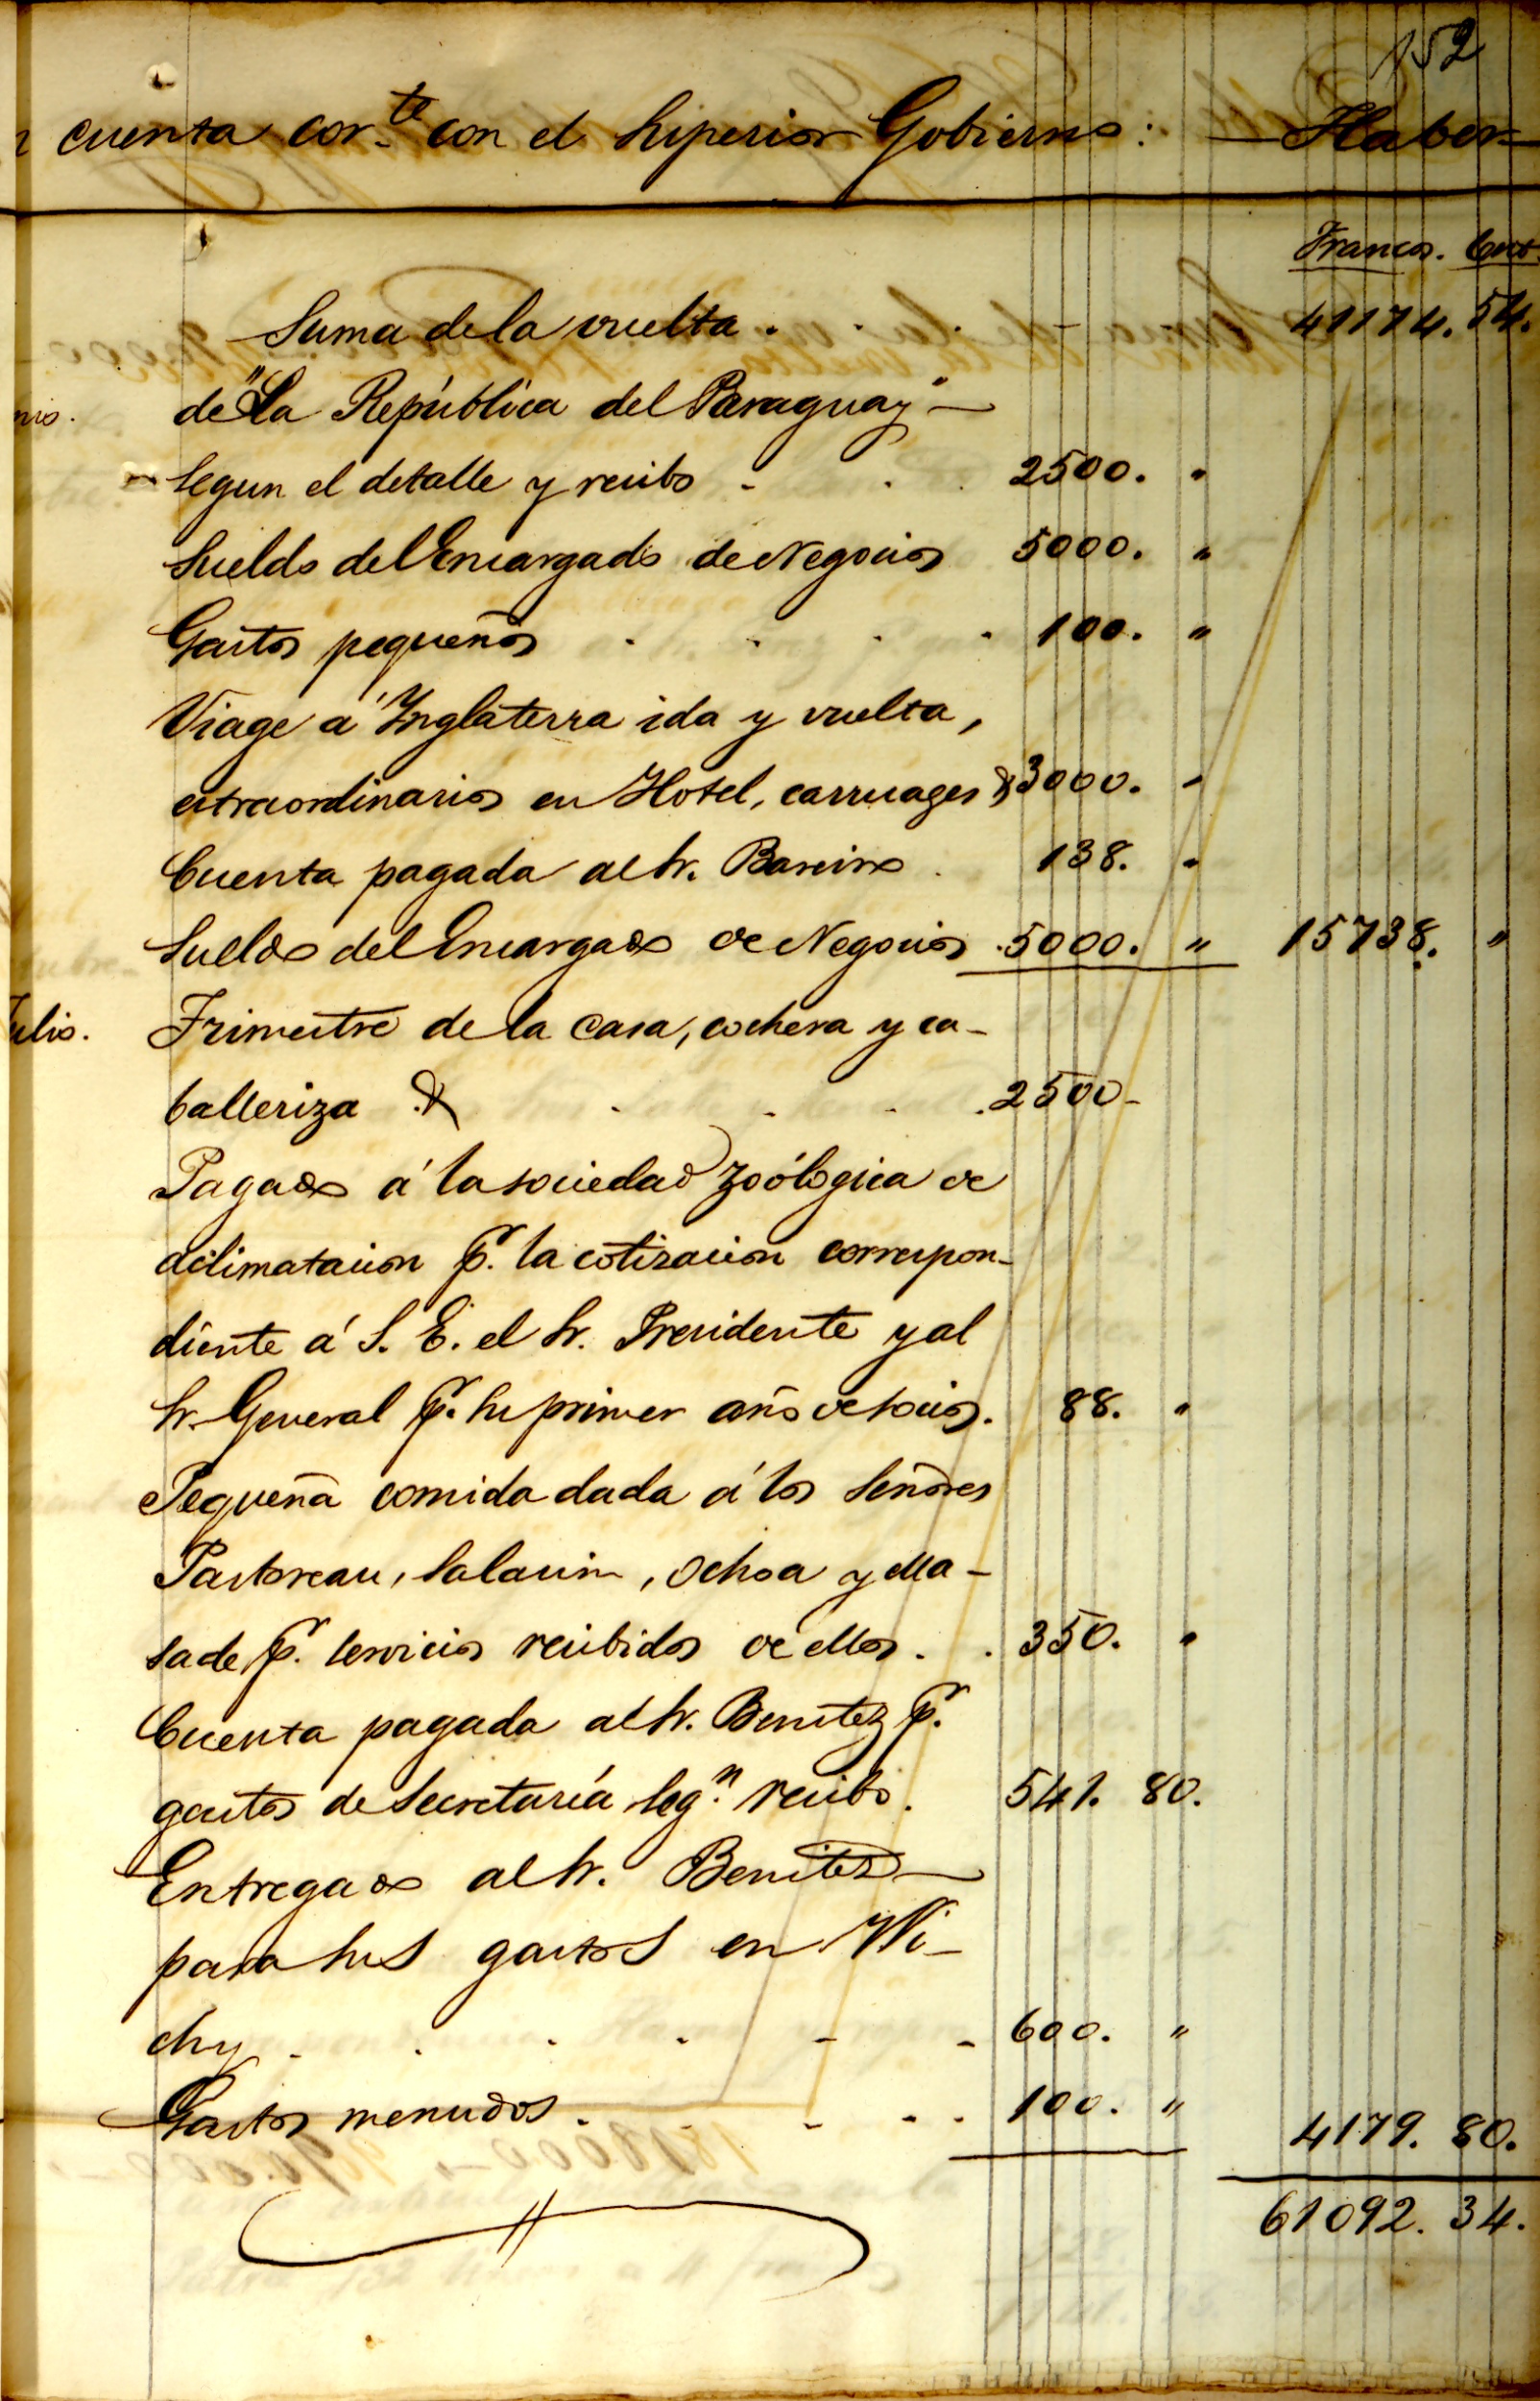 152
cuenta cor.te con el Superior Gobierno: Haber
Francos. Cent.
Suma de la vuelta . . . 41174. 54.
de "La República del Paraguay"
nio.
Segun el detalle y recibo - . . 2500. "
Sueldo del Encargado de Negocios 5000. "
Gastos pequeños . . . . 100. "
Viage á Inglaterra ida y vuelta,
extraordinarios en Hotel, carruages & 3000. "
Cuenta pagada al Sr. Bareiro . 138. "
Sueldo del Encargado de Negocios 5000. " 15738. "
Julio. Trimestre de la casa, cochera y ca-
balleriza & . . . . 2500-
Pagado á la sociedad Zoólogica de
aclimatacion pr. la cotizacion correspon-
diente á S. E. el Sr. Presidente y al
Sr. General pr. su primer año de socios. 88. "
Pequeña comida dada á los Señores
Pastoreau, Salacin, Ochoa y Ma-
sade pr. servicios recibidos de ellos . . 350. "
Cuenta pagada al Sr. Benitez pr.
gastos de Secretaría seg.n recibo. 541. 80.
Entregado al Sr. Benites
para sus gastos en Vi-
chy - . . . - - 600. "
Gastos menudos . . - . . 100. " 4179. 80.
61092. 34.